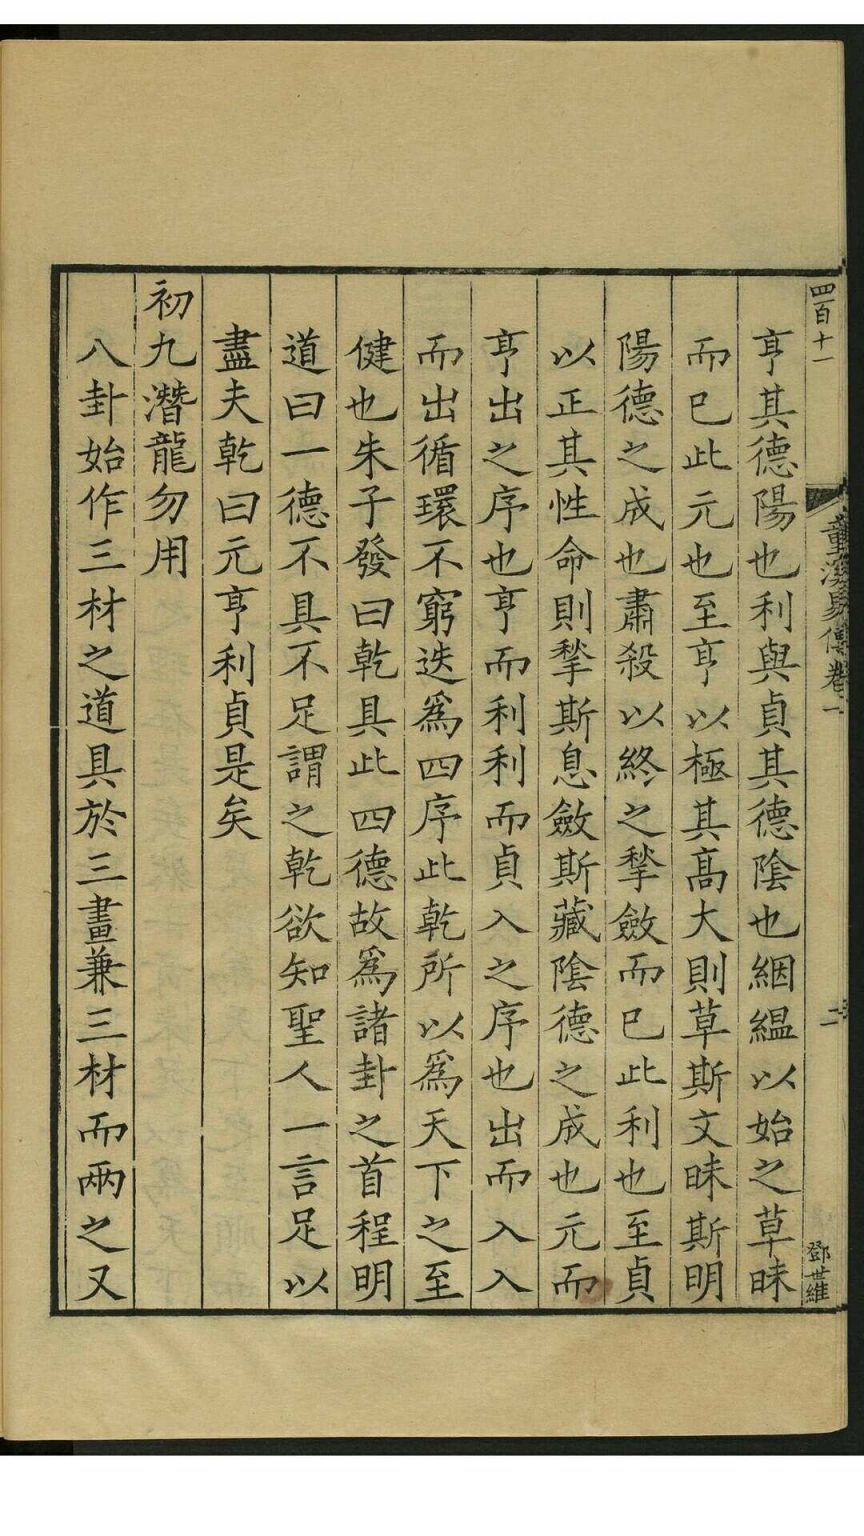 四百十一
童溪易傳卷一
二
鄧世維
亨其德陽也利與貞其德陰也絪縕以始之草昧
而已此元也至亨以極其高大則草斯文昧斯明
陽德之成也肅殺以終之揫斂而已此利也至貞
以正其性命則揫斯息斂斯藏陰德之成也元而
亨出之序也亨而利利而貞入之序也出而入入
而出循環不窮迭爲四序此乾所以爲天下之至
健也朱子發曰乾具此四德故爲諸卦之首程明
道曰一德不具不足謂之乾欲知聖人一言足以
盡夫乾曰元亨利貞是矣
初九潛龍勿用
八卦始作三材之道具於三畫兼三材而兩之又